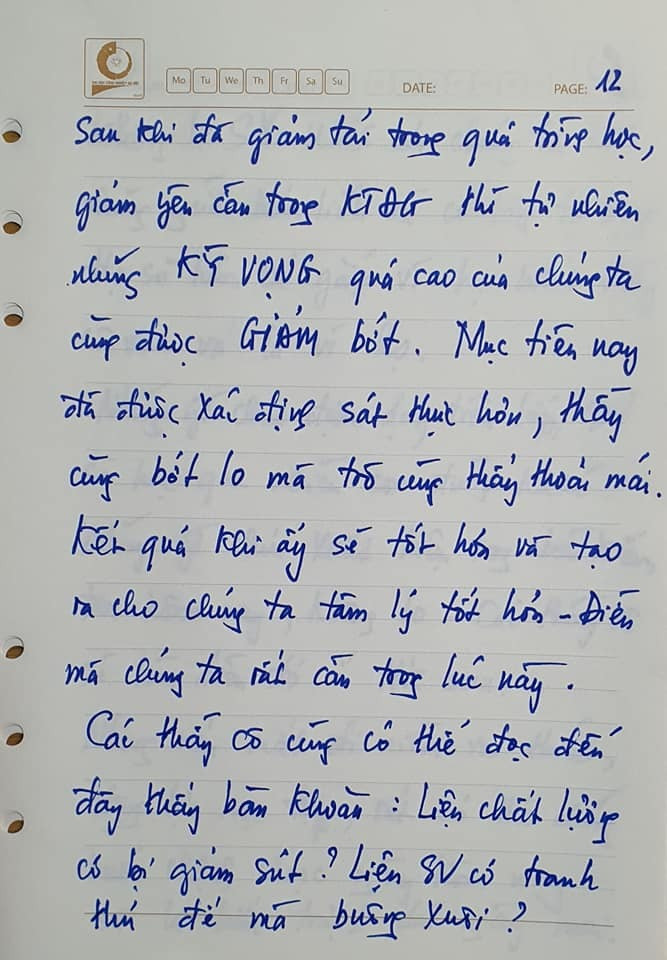 Mo Tu We Th Fr Sa Su DATE: PAGE: 12
Sau khi đã giảm tải trong quá trình học,
giảm yêu cầu trong KTĐG thì tự nhiên
những KỲ VỌNG quá cao của chúng ta
cũng được GIẢM bớt. Mục tiêu nay
đã được xác định sát thực hơn, thầy
cũng bớt lo mà trò cũng thấy thoải mái.
Kết quả khi ấy sẽ tốt hơn và tạo
ra cho chúng ta tâm lý tốt hơn - Điều
mà chúng ta rất cần trong lúc này.
Các thầy cô cũng có thể đọc đến
đây thấy băn khoăn: Liệu chất lượng
có bị giảm sút? Liệu SV có tranh
thủ để mà buông xuôi?